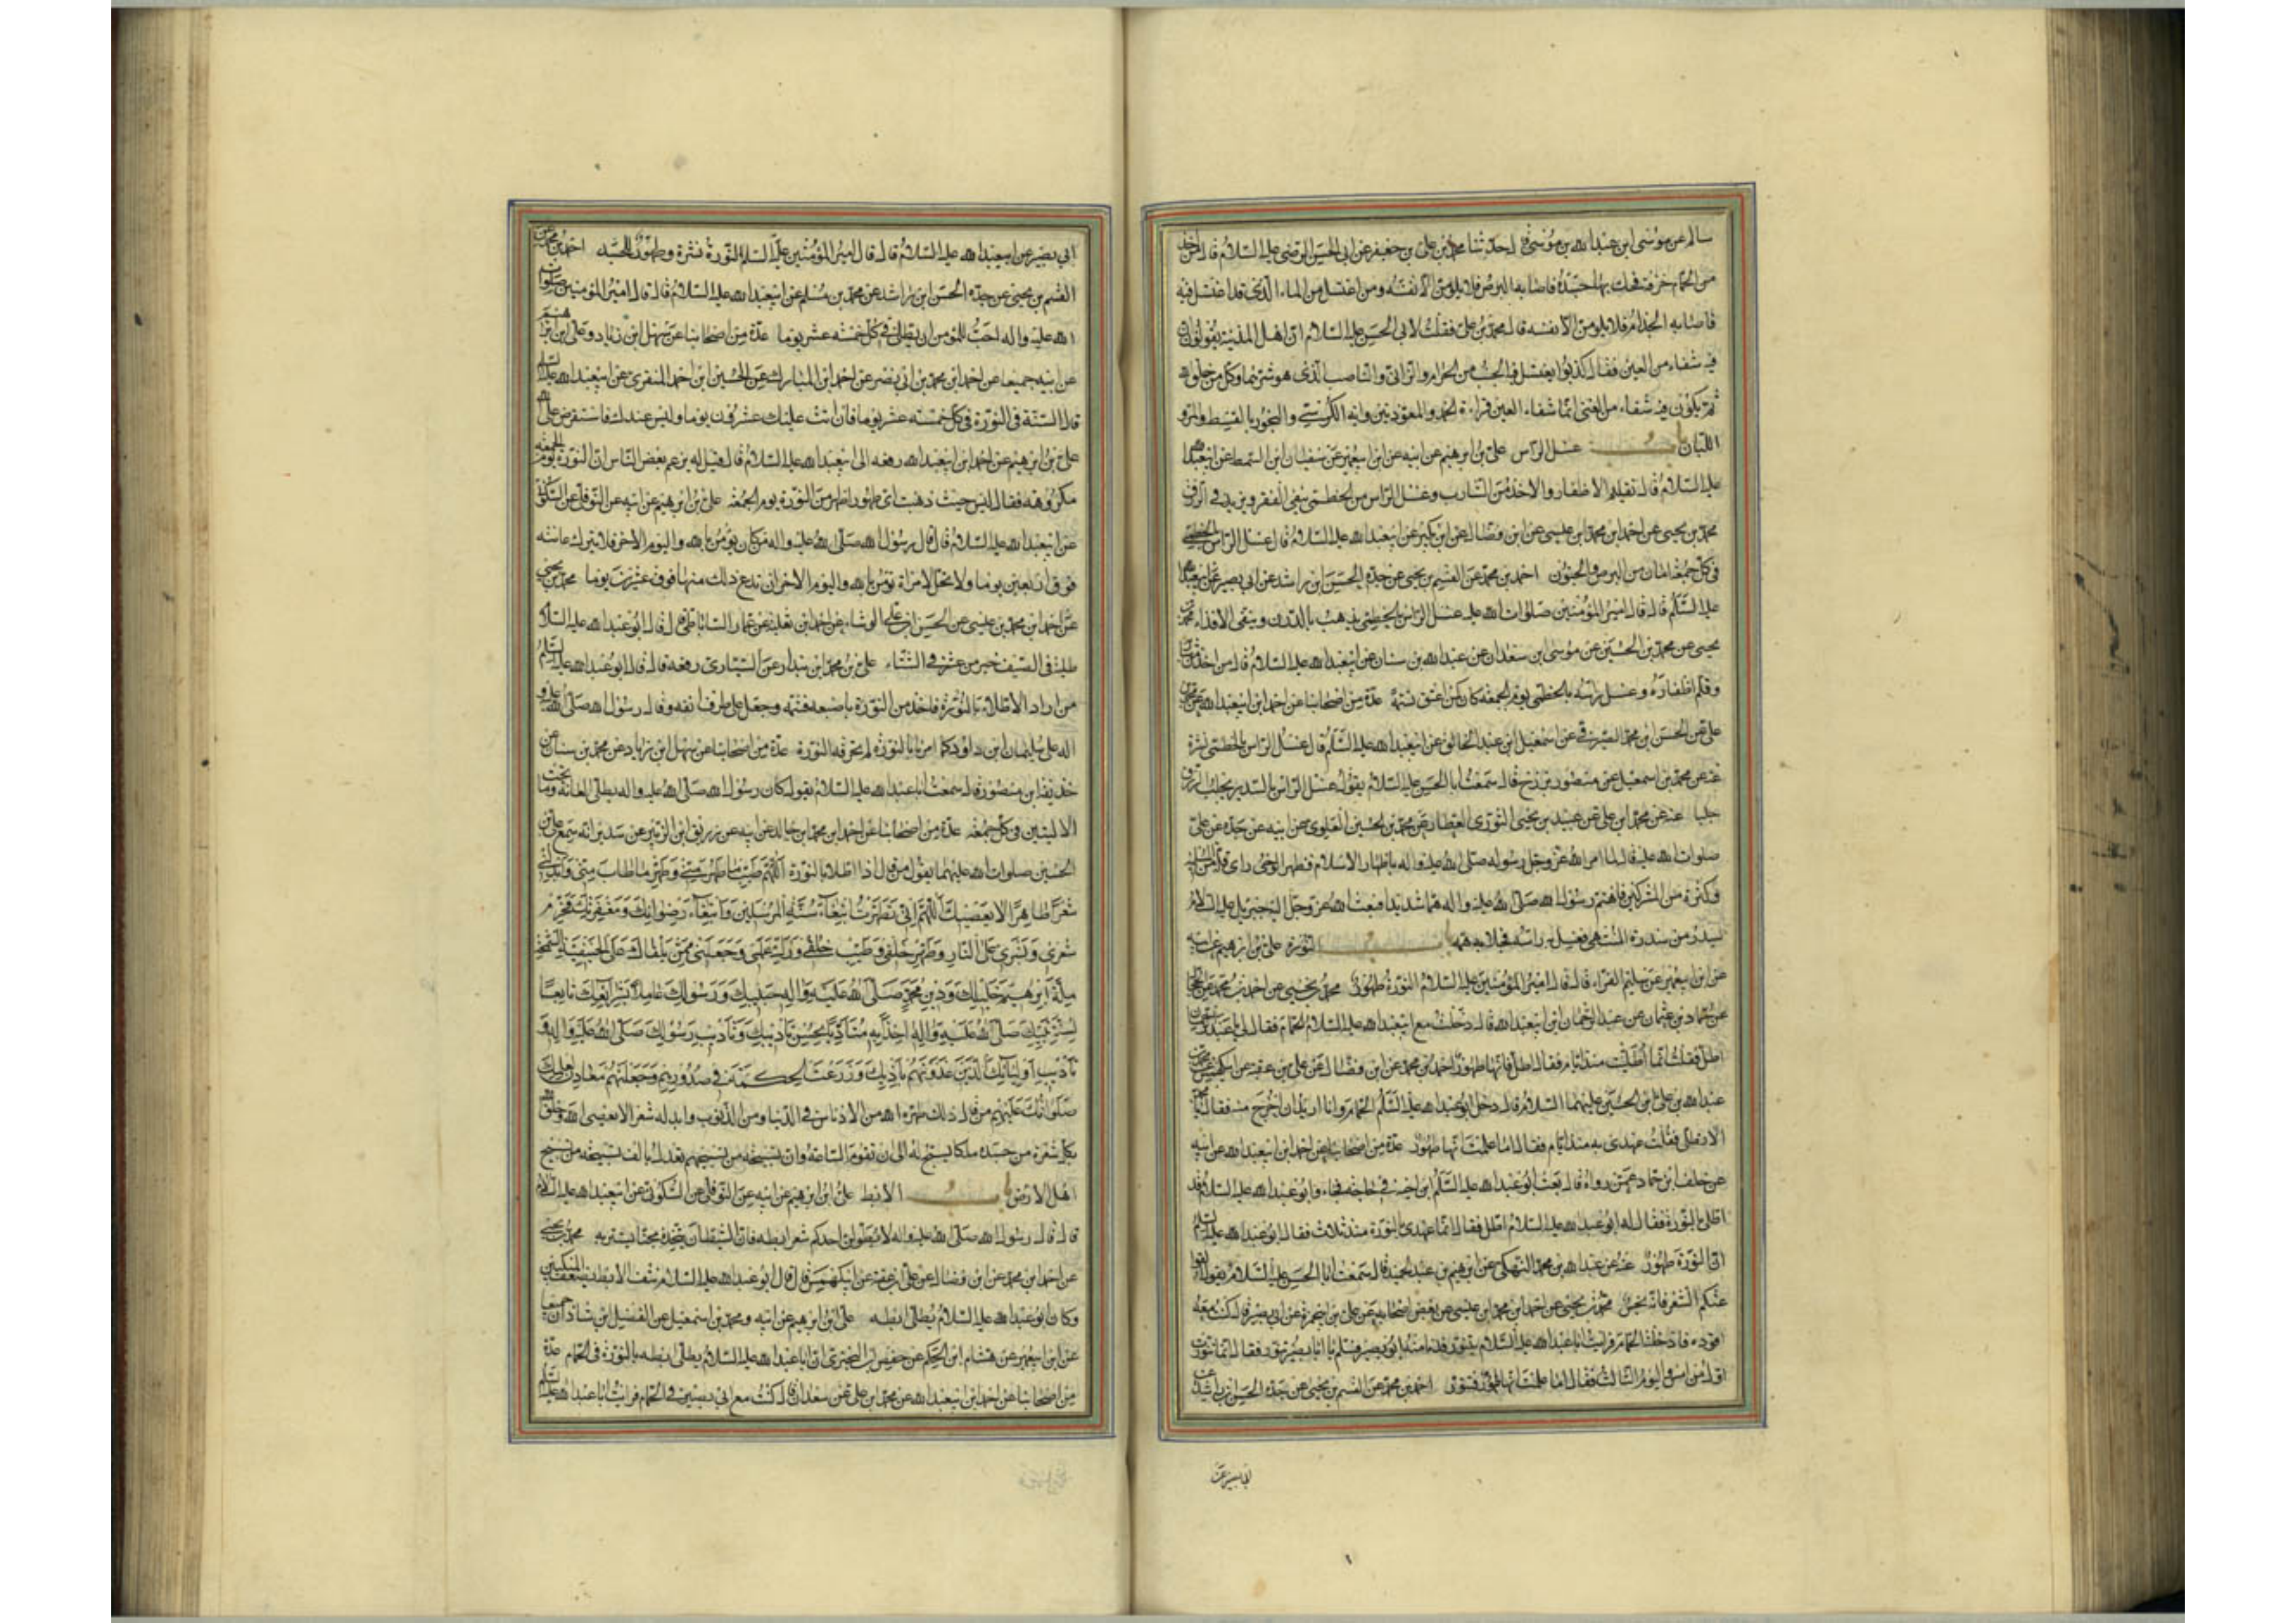 سالم عن موسى ابن عبدالله بن موسى قال حدثنا محمد بن على بن جعفر عن ابى الحسن الرضى عليه السلام قال من اخذ
من الحمام خزفة فحك بها جسده فاصابه البرص فلا يلومن الا نفسه ومن اغتسل من الماء الذى قد اغتسل فيه
فاصابه الجذام فلا يلومن الا نفسه قال محمد بن على فقلت لابى الحسن عليه السلام ان اهل المدينة يقولون ان
فيه شفاء من العين فقال كذبوا يغتسل فيه الجنب من الحرام والزانى والناصب الذى هو شرهما وكل من خلق الله
ثم يكون فيه شفاء من العين انما شفاء العين قراءة الحمد والمعوذتين واية الكرسى والبخور بالقسط والمر و
اللبان باب غسل الراس على بن ابرهيم عن ابيه عن ابن ابيعمير عن سفيان ابن السمط عن ابيعبدالله
عليه السلام قال تقليم الاظفار والاخذ من الشارب وغسل الراس من الخطمى ينفى الفقر ويزيد فى الرزق
محمد بن يحيى عن احمد ابن محمد ابن عيسى عن ابن فضال عن ابن بكير عن ابيعبدالله عليه السلام قال غسل الراس بالخطمى
فى كل جمعة امان من البرص والجنون احمد بن محمد عن القسيم بن يحيى عن جده الحسن ابن راشد عن ابى بصير عن ابيعبدالله
عليه السلم قال قال امير المؤمنين صلوات الله عليه غسل الراس بالخطمى يذهب بالدرن وينقى الاقذاء محمد بن
يحيى عن محمد بن الحسين عن موسى ابن سعدان عن عبدالله بن سنان عن ابيعبدالله عليه السلام قال من اخذ شاربه
وقلم اظفاره وغسل راسه بالخطمى يوم الجمعة كان كمن اعتق نسمة عدة من اصحابنا عن احمد ابن ابيعبدالله عن محمد بن
على عن الحسن ابن محمد الصيرفى عن اسمعيل ابن عبد الخالق عن ابيعبدالله عليه السلم قال غسل الراس بالخطمى نشرة
عنه عن محمد بن اسمعيل عن منصور بن بزرج قال سمعت ابا الحسن عليه السلام يقول غسل الراس بالسدر يجلب الرزق
جلبا عنه عن محمد ابن على عن عبيد بن يحيى الثورى العطار عن محمد بن الحسين العلوى عن ابيه عن جده عن على
صلوات الله عليه قال لما امر الله عز وجل رسوله صلى الله عليه واله باظهار الاسلام فظهر الوحى راى قلة من المسلمين
وكثرة من المشركين فاهتم رسول الله صلى الله عليه واله هما شديدا فبعث الله عز وجل اليه جبريل عليه السلام
بسدر من سدرة المنتهى فغسل به راسه فجلا به همه باب النورة على بن ابرهيم عن ابيه
عن ابن ابيعمير عن سليم الفراء قال قال امير المؤمنين عليه السلام النورة طهور محمد بن يحيى عن احمد بن محمد عن الحجال
عن حماد بن عثمان عن عبد الرحمان ابن ابيعبدالله قال دخلت مع ابيعبدالله عليه السلام الحمام فقال لى يا عبد الرحمن
اطل فقلت انما اطليت منذ ايام فقال اطل فانها طهور احمد بن محمد عن ابن فضال عن على بن عقبه عن ابيكهمس عن محمد بن
عبدالله بن على ابن الحسين عليهما السلام قال دخل ابو عبدالله عليه السلم الحمام وانا اريد ان اخرج منه فقال يا محمد
الا تطلى فقلت عهدى به منذ ايام فقال اما علمت انها طهور عدة من اصحابنا عن احمد ابن ابيعبدالله عن ابيه
عن خلف ابن حماد عمن رواه قال بعث ابو عبدالله عليه السلم ابن اخيه فى حاجه فجاء وابو عبدالله عليه السلام قد
اطلى بالنورة فقال له ابو عبدالله عليه السلام اطل فقال انما عهدى بالنورة منذ ثلاث فقال ابو عبدالله عليه السلم
ان النورة طهور عنه عن عبدالله بن محمد النهيكى عن ابرهيم بن عبد الحميد قال سمعت ابا الحسن عليه السلام يقول القوا
عنكم الشعر فانه نجس محمد بن يحيى عن احمد ابن محمد ابن عيسى عن بعض اصحابه عن على بن ابيحمزة عن ابى بصير قال كنت معه
اقوده فادخلته الحمام فرايت ابا عبدالله عليه السلام يتنور فدنا منه ابو بصير فسلم يا ابا بصير تنور فقال انما تنورت
اول من امس واليوم الثالث فقال اما علمت انها طهور فتنور احمد بن محمد عن القسم بن يحيى عن جده الحسن ابن راشد عن
ابى بصير عن
ابى بصير عن ابيعبدالله عليه السلام قال قال امير المؤمنين عليه السلم النورة نشرة وطهور للجسد احمد بن محمد عن
القسم بن يحيى عن جده الحسن ابن راشد عن محمد بن مسلم عن ابيعبدالله عليه السلام قال قال امير المؤمنين صلوات
الله عليه واله احب للمؤمن ان يطلى فى كل خمسه عشر يوما عدة من اصحابنا عن سهل ابن زياد وعلى ابن ابرهيم
عن ابيه جميعا عن احمد ابن محمد بن ابى نصر عن احمد ابن المبارك عن الحسين ابن احمد المنقرى عن ابيعبدالله عليه السلم
قال السنة فى النورة فى كل خمسه عشر يوما فان اتت عليك عشرون يوما وليس عندك فاستقرض على الله
على بن ابرهيم عن احمد ابن ابيعبدالله رفعه الى ابيعبدالله عليه السلام قال قيل له يزعم بعض الناس ان النورة يوم الجمعة
مكروهه فقال ليس حيث ذهبت اى طهور اطهر من النورة يوم الجمعة على بن ابرهيم عن ابيه عن النوفلى عن السكونى
عن ابيعبدالله عليه السلام قال قال رسول الله صلى الله عليه واله من كان يؤمن بالله واليوم الاخر فلا يترك عانته
فوق اربعين يوما ولا يحل لامراة تؤمن بالله واليوم الاخر ان تدع ذلك منها فوق عشرين يوما محمد بن يحيى
عن احمد ابن محمد بن عيسى عن الحسن ابن على الوشاء عن احمد ابن ثعلبة عن عمار الساباطى قال قال ابو عبدالله عليه السلام
طلية فى الصيف خير من عشر فى الشتاء على بن محمد ابن بندار عن السيارى رفعه قال قال ابو عبدالله عليه السلم
من اراد الاطلاء بالنورة فاخذ من النورة باصبعه فشمه وجعل على طرف انفه وقال رسول الله صلى الله عليه و
اله على سليمان ابن داود كما امرنا بالنورة لم تحرقه النورة عدة من اصحابنا عن سهل ابن زياد عن محمد بن سنان عن
حذيفة ابن منصور قال سمعت ابا عبدالله عليه السلام يقول كان رسول الله صلى الله عليه واله يطلى العانة وما تحت
الاليتين فى كل جمعه عدة من اصحابنا عن احمد ابن محمد ابن خالد عن ابيه عن زريق ابن الزبير عن سدير انه سمع على بن
الحسين صلوات الله عليهما يقول من قال اذا اطلا بالنورة اللهم طيب ما طهر منى وطهر ما طاب منى وابدلنى
شعرا طاهرا لا يعصيك اللهم انى تطهرت ابتغاء سنة المرسلين وابتغاء رضوانك ومغفرتك فحرم
شعرى وبشرى على النار وطهر خلقى وطيب خلقى وزك عملى واجعلنى ممن يلقاك على الحنيفية السمحة
ملة ابرهيم خليلك ودين محمد صلى الله عليه واله حبيبك ورسولك عاملا بشرايعك تابعا
لسنة نبيك صلى الله عليه واله اخذا به متادبا بحسن تاديبك وتاديب رسولك صلى الله عليه واله و
تاديب اوليائك الذين غذوتهم بادبك وزرعت الحكمة فى صدورهم وجعلتهم معادن لعلمك
صلواتك عليهم من قال ذلك طهره الله من الادناس فى الدنيا ومن الذنوب وابدله شعرا لا يعصى الله وخلق الله
بكل شعرة من جسده ملكا يسبح له الى ان تقوم الساعة وان تسبيحة من تسبيحهم تعدل بالف تسبيحه من تسبيح
اهل الارض باب الابط على ابن ابرهيم عن ابيه عن النوفلى عن السكونى عن ابيعبدالله عليه السلام
قال قال رسول الله صلى الله عليه واله لا يطولن احدكم شعر ابطه فان الشيطان يتخذه مجنا يستتر به محمد بن يحيى
عن احمد ابن محمد عن ابن فضال عن على بن عقبة عن ابيكهمس قال قال ابو عبدالله عليه السلام نتف الابط يضعف المنكبين
وكان ابو عبدالله عليه السلام يطلى ابطه على ابن ابرهيم عن ابيه ومحمد بن اسمعيل عن الفضيل ابن شاذان جميعا
عن ابن ابيعمير عن هشام ابن الحكم عن حفص ابن البخترى ان ابا عبدالله عليه السلام يطلى ابطه بالنورة فى الحمام عدة
من اصحابنا عن احمد ابن ابيعبدالله عن محمد ابن على عن سعدان قال كنت مع ابى بصير فى الحمام فرايت ابا عبدالله عليه السلم